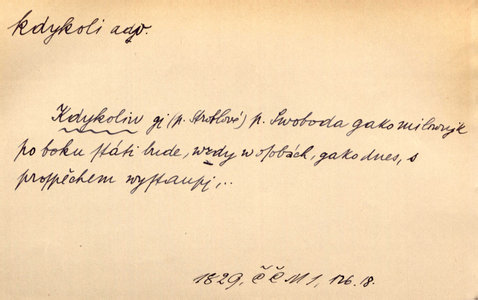 kdykoli adv.
Kdykoliv gj (p. Strotlové) p. Swoboda gako milownjk
po boku státi bude, wzdy w osobách, gako dnes, s
prospěchem wystaupj,..
1829, ČČM 1, 126.18.